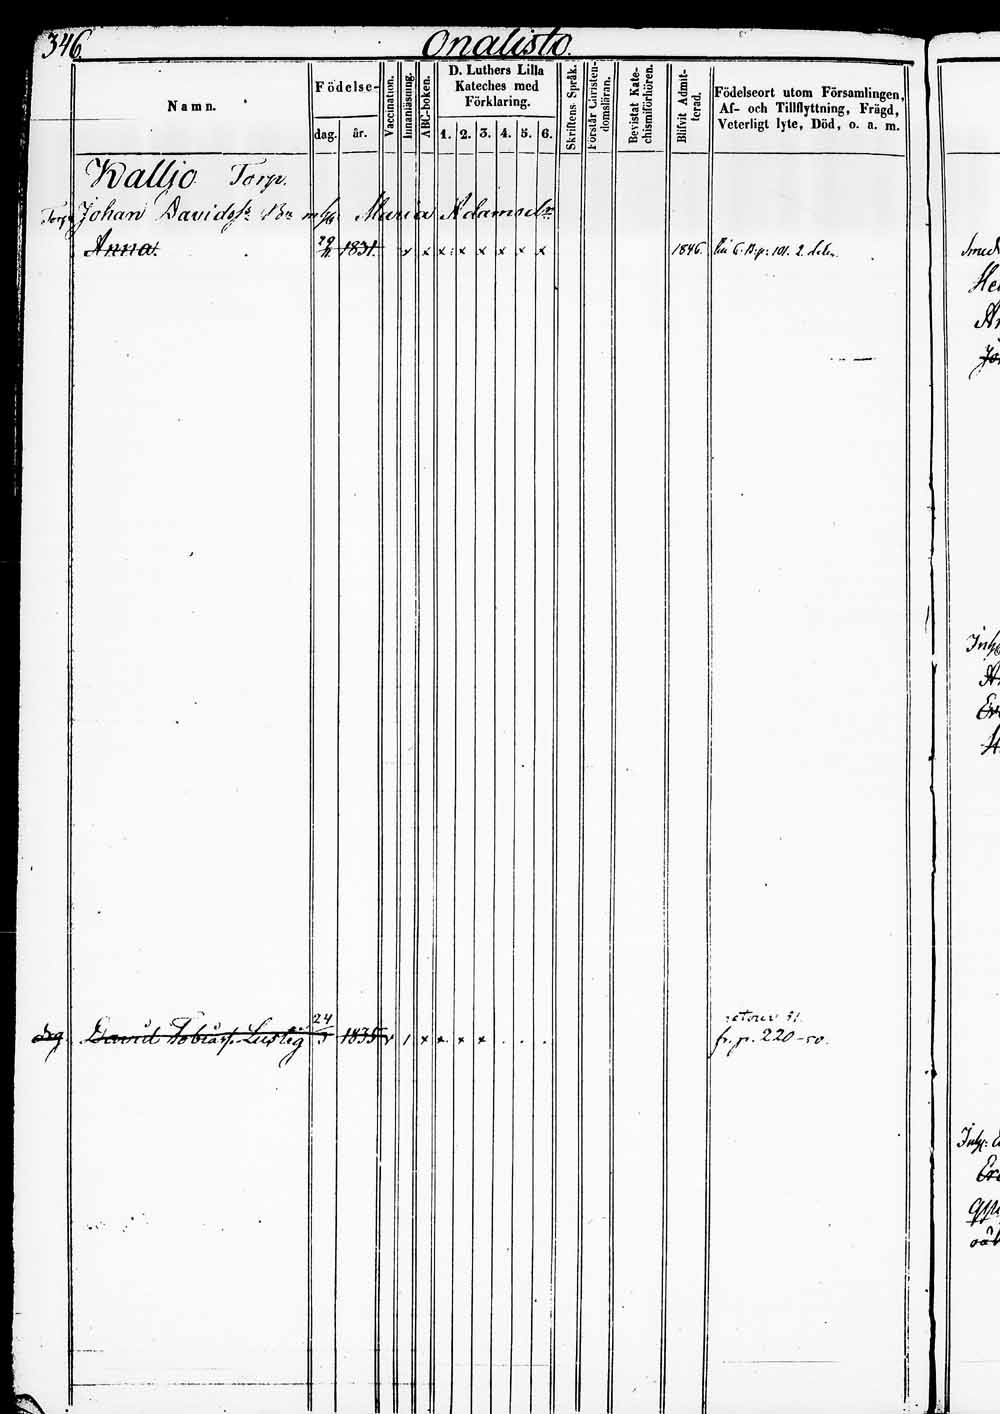 346. Onalisto.
Namn.
Födelse-
dag. år.
Vaccination.
Innanläsning.
ABC-boken.
D. Luthers Lilla
Kateches med
Förklaring.
1. 2. 3. 4. 5. 6.
Skriftens Språk.
Förstår Christen-
domsläran.
Bevistat Kate-
chismiförhören.
Blifvit Admit-
terad.
Födelseort utom Församlingen,
Af- och Tillflyttning, Frägd,
Veterligt lyte, Död, o. a. m.
Kallio Torp.
Torp. Johan Davids Maria Adamsdr
Anna. 29 1831. x x x x x x x 1846. p: 101. 2. delen
retour 51.
drg David Tobiass. Lustig 24/5 1835 v / x x x x . . . fr. p. 220-50.